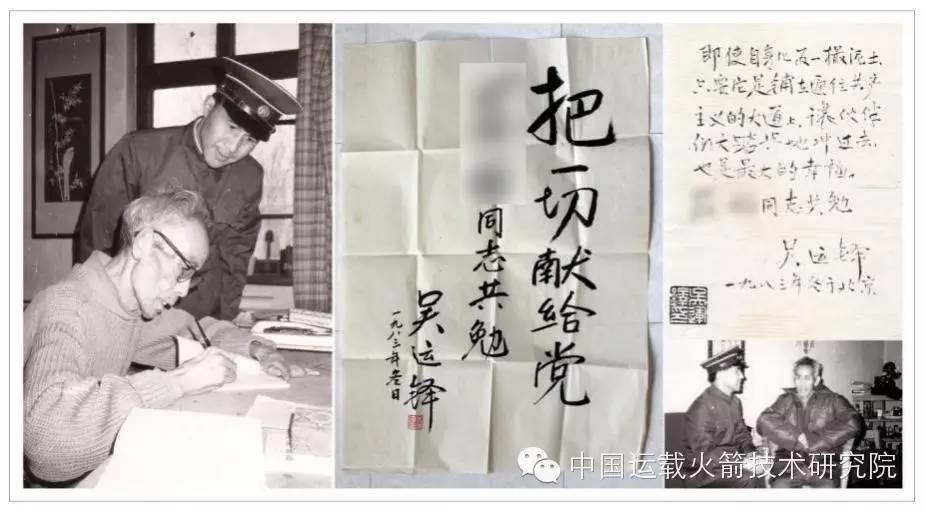 把一切献给党
同志共勉
吴运铎
一九八三年冬日
即使自身化为一撮泥土
只要它是铺在通往共产
主义的大道上,让伙伴
们大踏步地冲过去
也是最大的幸福。
同志共勉
吴运铎
一九八三年冬于北京
中国运载火箭技术研究院